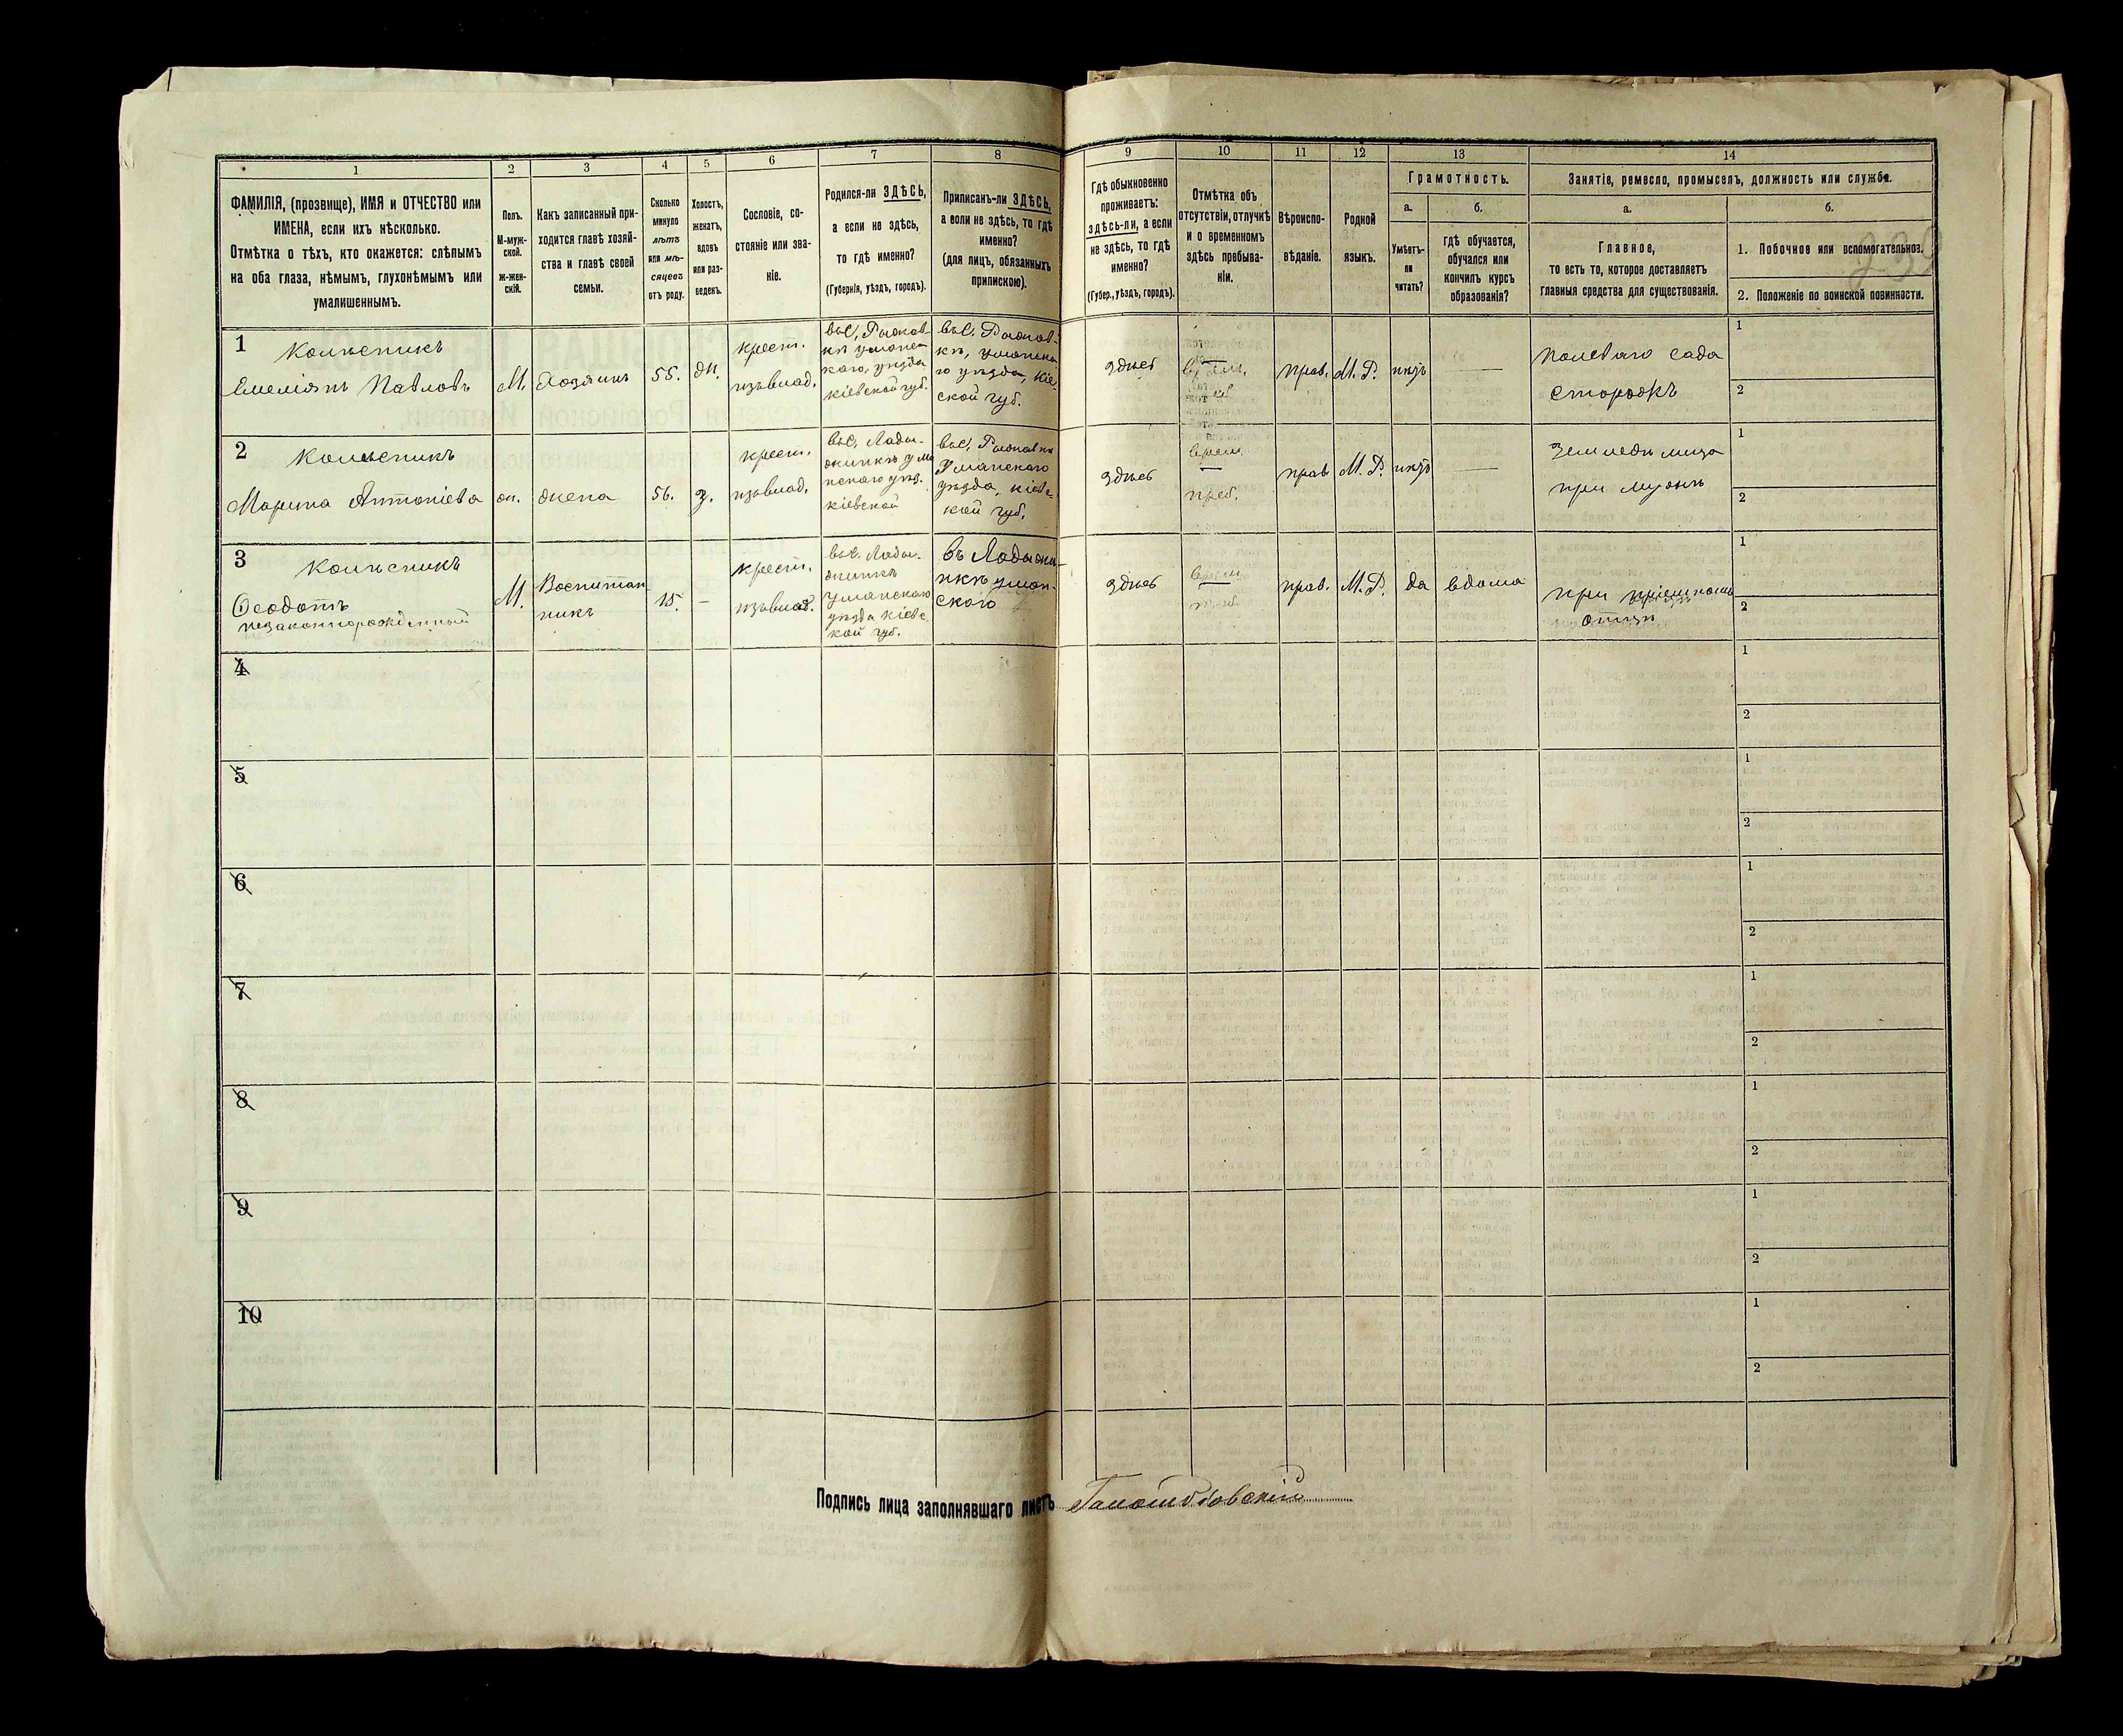 1 2 3 4 5 6 7 8 9 10 11 12 13 14
ФАМИЛІЯ, (прозвище), ИМЯ и ОТЧЕСТВО или
ИМЕНА, если ихъ нѣсколько.
Отмѣтка о тѣхъ, кто окажется: слѣпымъ
на оба глаза, нѣмымъ, глухонѣмымъ или
умалишеннымъ.
Полъ.
М-муж-
ской.
Ж-жен-
скій.
Какъ записанный при-
ходится главѣ хозяй-
ства и главѣ своей
семьи.
Сколько
минуло
лѣтъ
или мѣ-
сяцевъ
отъ роду.
Холостъ,
женатъ,
вдовъ
или раз-
веденъ.
Сословіе, со-
стояніе или зва-
ніе.
Родился-ли ЗДѢСЬ,
а если не здѣсь,
то гдѣ именно?
(Губернія, уѣздъ, городъ).
Приписанъ-ли ЗДѢСЬ,
а если не здѣсь, то гдѣ
именно?
(для лицъ, обязанныхъ
припискою).
Гдѣ обыкновенно
проживаетъ:
здѣсь-ли, а если
не здѣсь, то гдѣ
именно?
(Губер., уѣздъ, городъ).
Отмѣтка объ
отсутствіи, отлучкѣ
и о временномъ
здѣсь пребыва-
ніи.
Вѣроиспо-
вѣданіе.
Родной
языкъ.
Грамотность.
а.
Умѣетъ-
ли
читать?
б.
гдѣ обучается,
обучался или
кончилъ курсъ
образованія?
Занятіе, ремесло, промыселъ, должность или служба.
а.
Главное,
то есть то, которое доставляетъ
главныя средства для существованія.
б.
1. Побочное или вспомогательное.
2. Положеніе по воинской повинности.
1
Колѣсникъ
Емеліянъ Павловъ
М.
Хозяинъ
55.
ж.
крест.
изъ влад.
въ с. Рыжав-
кѣ уманс-
каго, уѣзда
кіевской губ.
въ с. Рыжав-
кѣ,
ской губ.
здѣсь
прав.
М. Р.
нѣтъ
—
Полеваго сада
Сторожъ
1
2
2
Колѣсникъ
Марина Антоніева
ж.
жена
56.
з.
крест.
изъ влад.
въ с. Лады-
жинкѣ ума
нскаго уѣз.
кіевской
въ с. Рыжавкѣ
Уманскаго
уѣзда, кіевс-
кой губ.
здѣсь
врем.
—
преб.
прав.
М. Р.
нѣтъ
—
Земледѣлица
при мужѣ
1
2
3
Колѣсникъ
Ѳеодотъ
незаконнорожденный
М.
Воспитан
никъ
15.
—
крест.
изъ влад.
въ с. Лады-
жинкѣ
Уманскаго
уѣзда кіевс
кой губ.
въ Ладыжи-
нкѣ уман-
скаго
здѣсь
прав.
М. Р.
да
вдома
при пріемномъ
отцѣ
1
2
4
1
2
5
1
2
6
1
2
7
1
2
8
1
2
9
1
2
10
1
2
Подпись лица заполнявшаго листъ